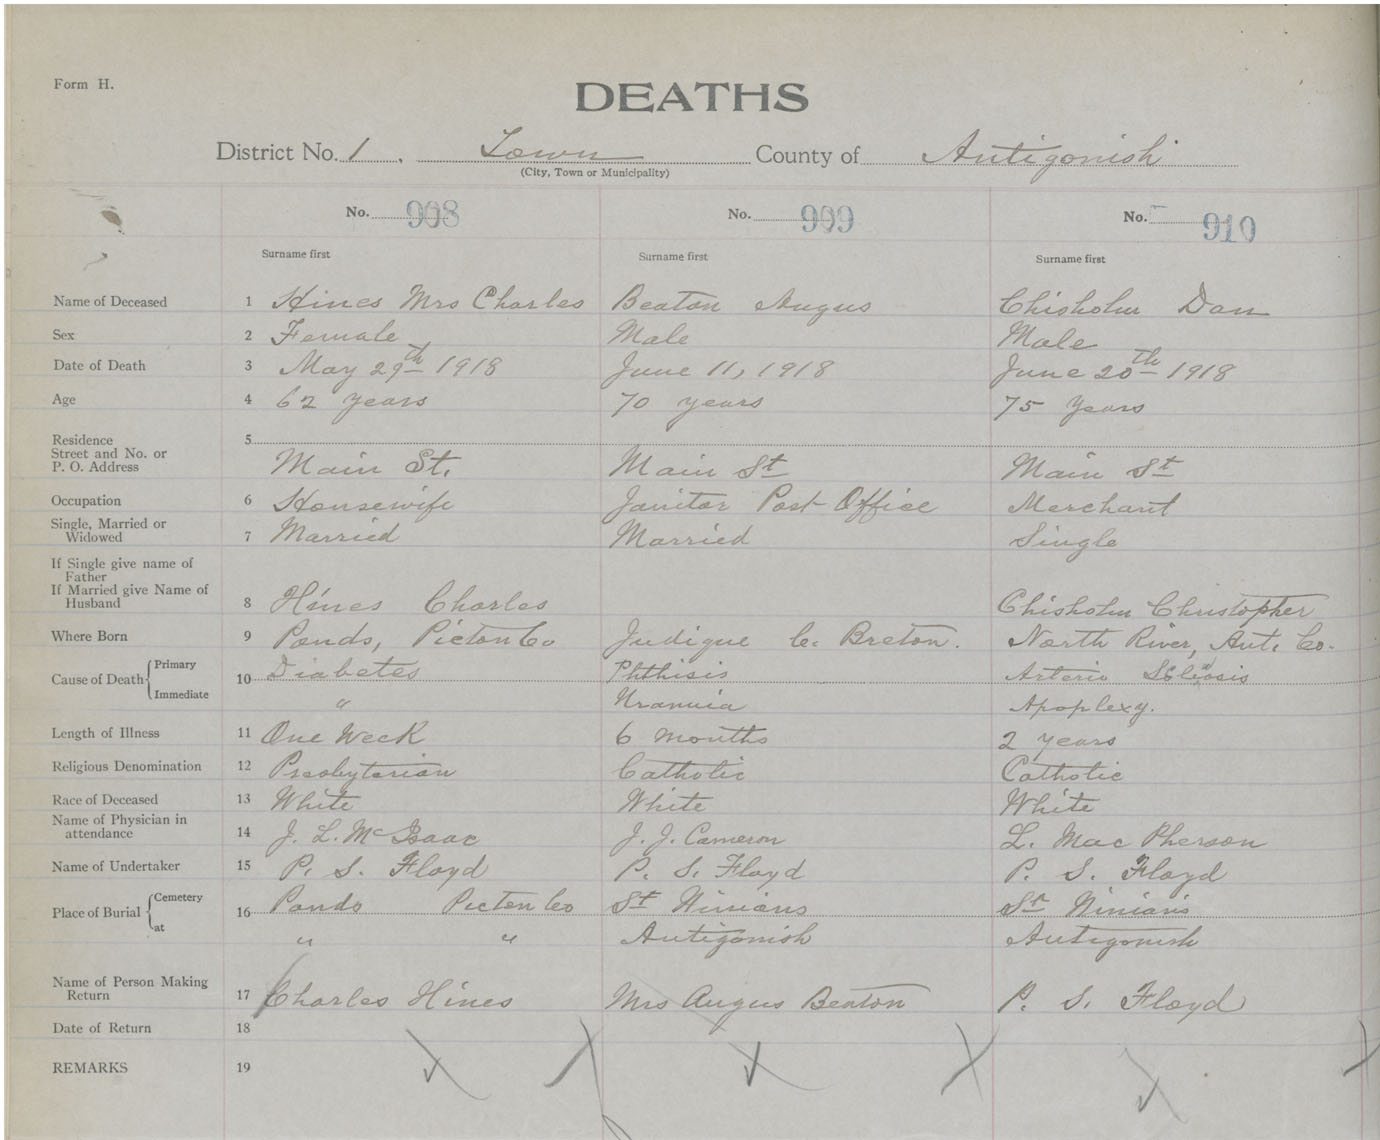 Form H.
DEATHS
District No. 1. Town County of Antigonish
(City, Town or Municipality)
No. 908 No. 909 No. 910
Surname first Surname first Surname first
Name of Deceased 1 Hines Mrs Charles Beaton Angus Chisholm Dan
Sex 2 Female Male Male
Date of Death 3 May 29th 1918 June 11, 1918 June 20th 1918
Age 4 62 years 70 years 75 years
Residence 5
Street and No. or
P. O. Address Main St. Main St Main St
Occupation 6 Housewife Janitor Post Office Merchant
Single, Married or
Widowed 7 Married Married Single
If Single give name of
Father
If Married give Name of
Husband 8 Hines Charles Chisholm Christopher
Where Born 9 Ponds, Picton Co Judique C. Breton. North River, Ant. Co.
Cause of Death Primary 10 Diabetes Phthisis Arterio
Immediate " Apoplexy.
Length of Illness 11 One Week 6 months 2 years
Religious Denomination 12 Presbyterian Catholic Catholic
Race of Deceased 13 White White White
Name of Physician in
attendance 14 J. L. McIsaac J. J. Cameron L. MacPherson
Name of Undertaker 15 P. S. Floyd P. S. Floyd P. S. Floyd
Place of Burial Cemetery 16 Ponds Picton Co St Ninians St Ninians
at " " Antigonish Antigonish
Name of Person Making
Return 17 Charles Hines Mrs Angus Beaton P. S. Floyd
Date of Return 18
REMARKS 19